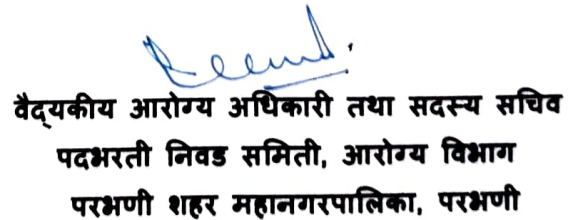 वैद्यकीय आरोग्य अधिकारी तथा सदस्य सचिव
पदभरती निवड समिती, आरोग्य विभाग
परभणी शहर महानगरपालिका, परभणी